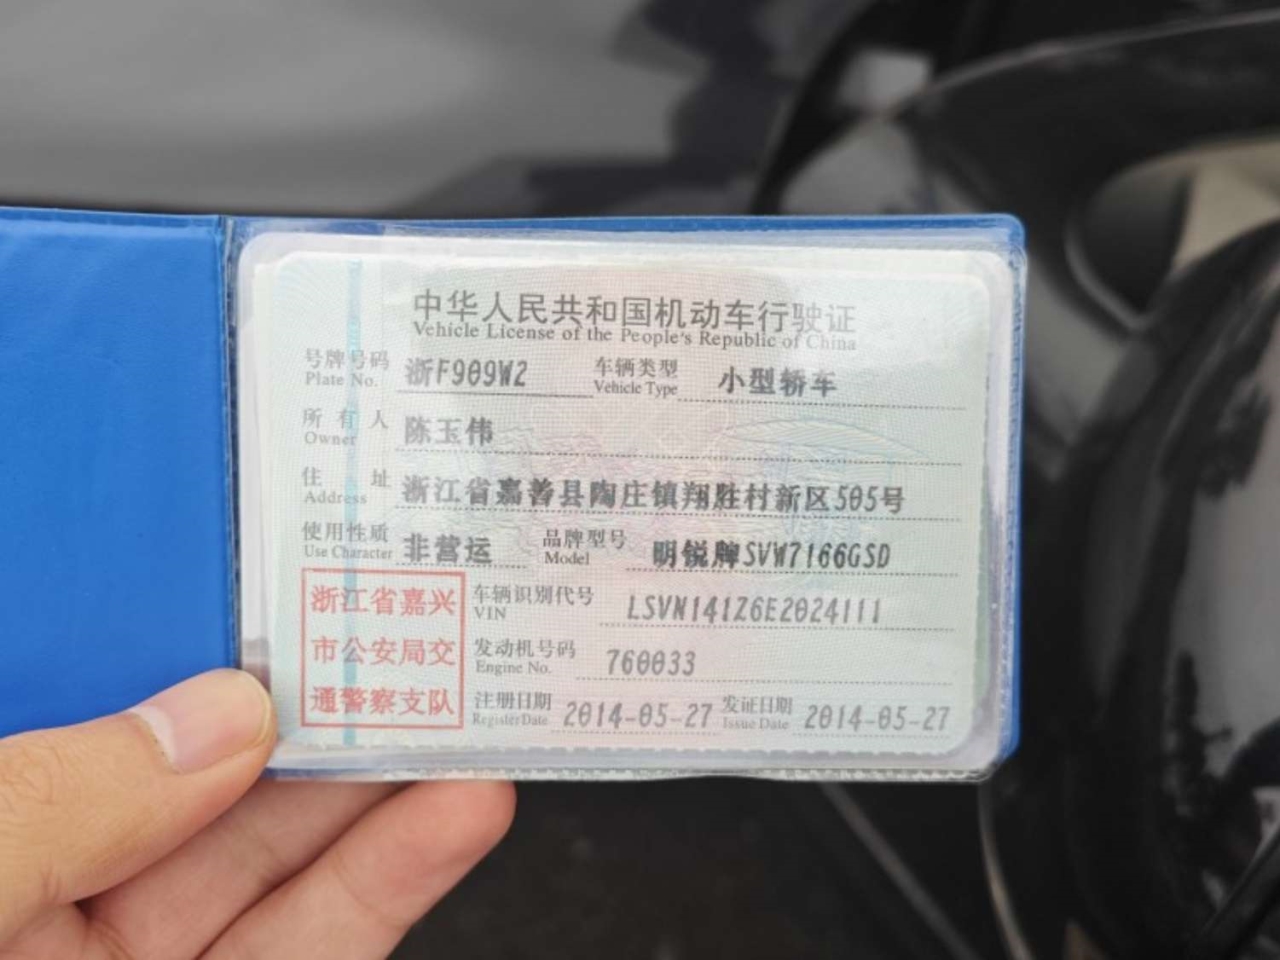 中华人民共和国机动车行驶证
Vehicle License of the People's Republic of China
号牌号码 浙F909W2 车辆类型 小型轿车
Plate No. Vehicle Type
所有人 陈玉伟
Owner
住址 浙江省嘉善县陶庄镇翔胜村新区505号
Address
使用性质 非营运 品牌型号 明锐牌SVW7166GSD
Use Character Model
浙江省嘉兴
市公安局交
通警察支队
车辆识别代号 LSVN141Z6E2024111
VIN
发动机号码 760033
Engine No.
注册日期 2014-05-27 发证日期 2014-05-27
Register Date Issue Date